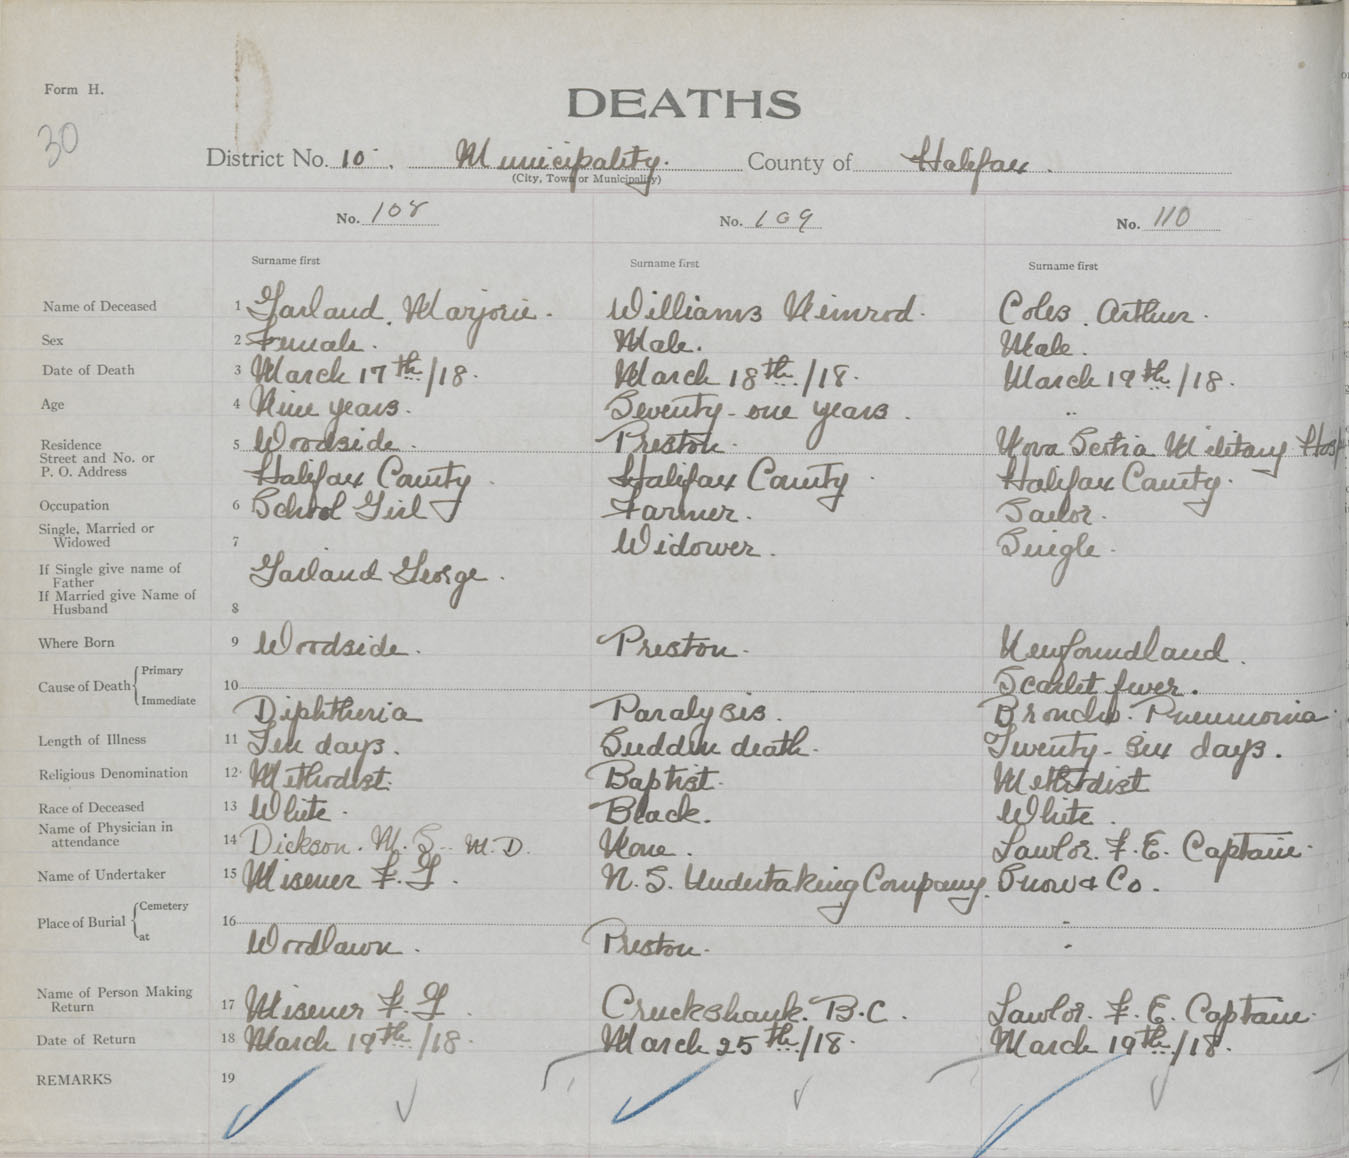 Form H.
DEATHS
30
District No. 10. Municipality. County of Halifax.
(City, Town or Municipality)
No. 108 No. 109 No. 110
Surname first Surname first Surname first
Name of Deceased 1 Garland, Marjorie. Williams Nimrod. Coles, Arthur.
Sex 2 Female. Male. Male.
Date of Death 3 March 17th/18. March 18th/18. March 19th/18.
Age 4 Nine years. Seventy-one years. "
Residence 5 Woodside. Preston. Nova Scotia Military Hosp
Street and No. or
P. O. Address Halifax County. Halifax County. Halifax County.
Occupation 6 School Girl Farmer. Sailor.
Single, Married or
Widowed 7 Widower. Single.
If Single give name of
Father Garland George.
If Married give Name of
Husband 8
Where Born 9 Woodside. Preston. Newfoundland.
Cause of Death { Primary 10 Scarlet fever.
Immediate Diphtheria Paralysis. Broncho. Pneumonia.
Length of Illness 11 Ten days. Sudden death. Twenty-six days.
Religious Denomination 12 Methodist. Baptist. Methodist
Race of Deceased 13 White. Black. White.
Name of Physician in
attendance 14 Dickson. M. S. M.D. None. Lawlor. F. E. Captain.
Name of Undertaker 15 Misener F. G. N. S. Undertaking Company. Snow & Co.
Place of Burial { Cemetery 16 -
at Woodlawn. Preston. -
Name of Person Making
Return 17 Misener F. G. Cruckshank. B.C. Lawlor. F. E. Captain.
Date of Return 18 March 19th/18. March 25th/18. March 19th/18.
REMARKS 19